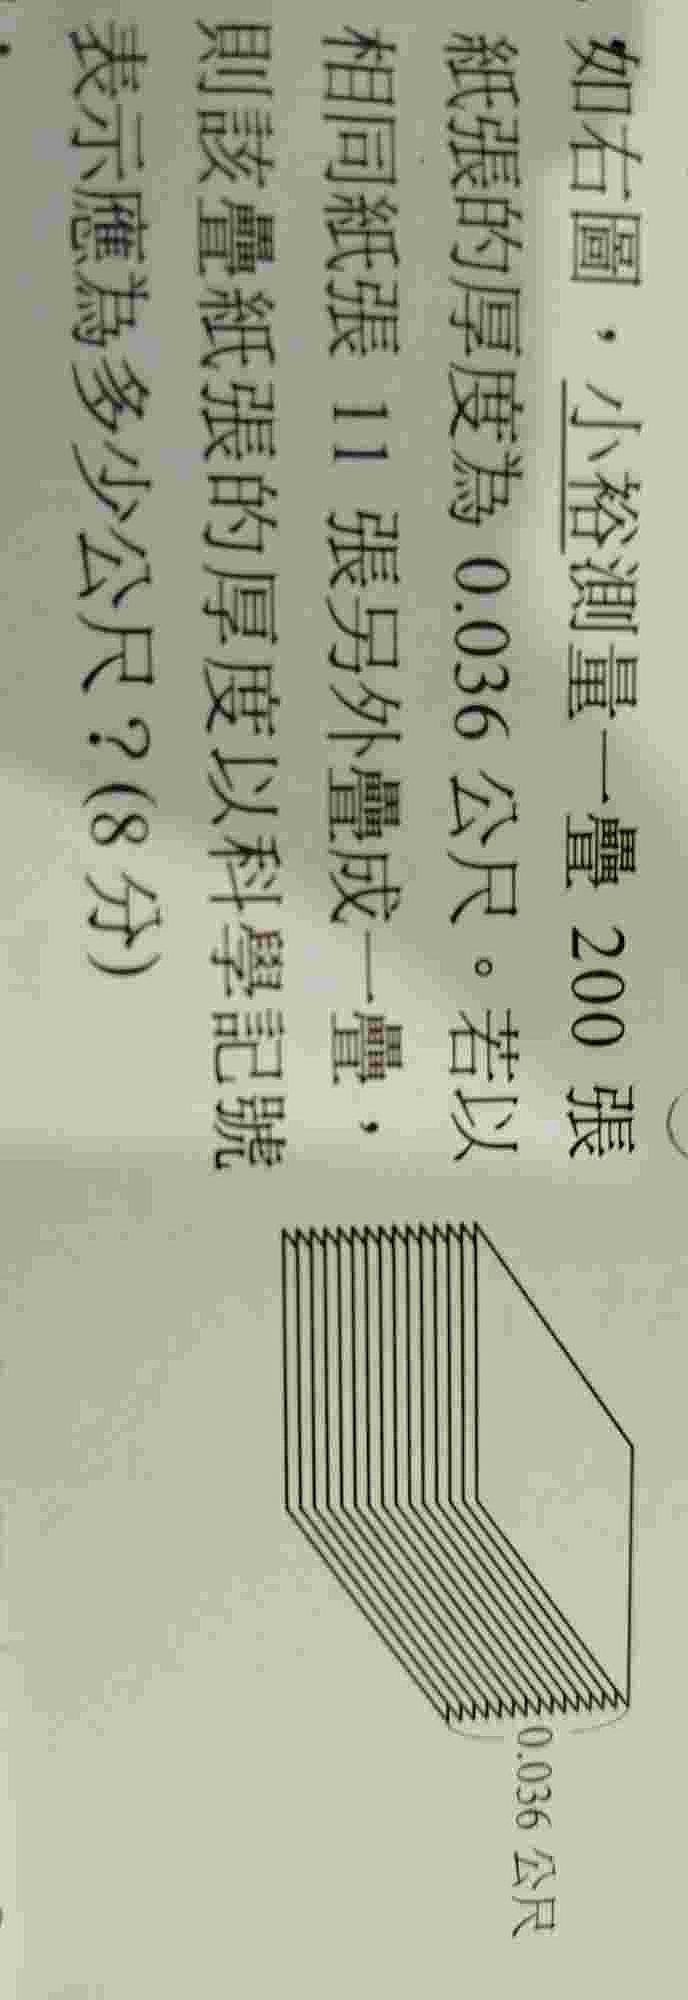 如右圖，小裕測量一疊 200 張
紙張的厚度為 0.036 公尺。若以
相同紙張 11 張另外疊成一疊，
則該疊紙張的厚度以科學記號
表示應為多少公尺？(8 分)
0.036 公尺